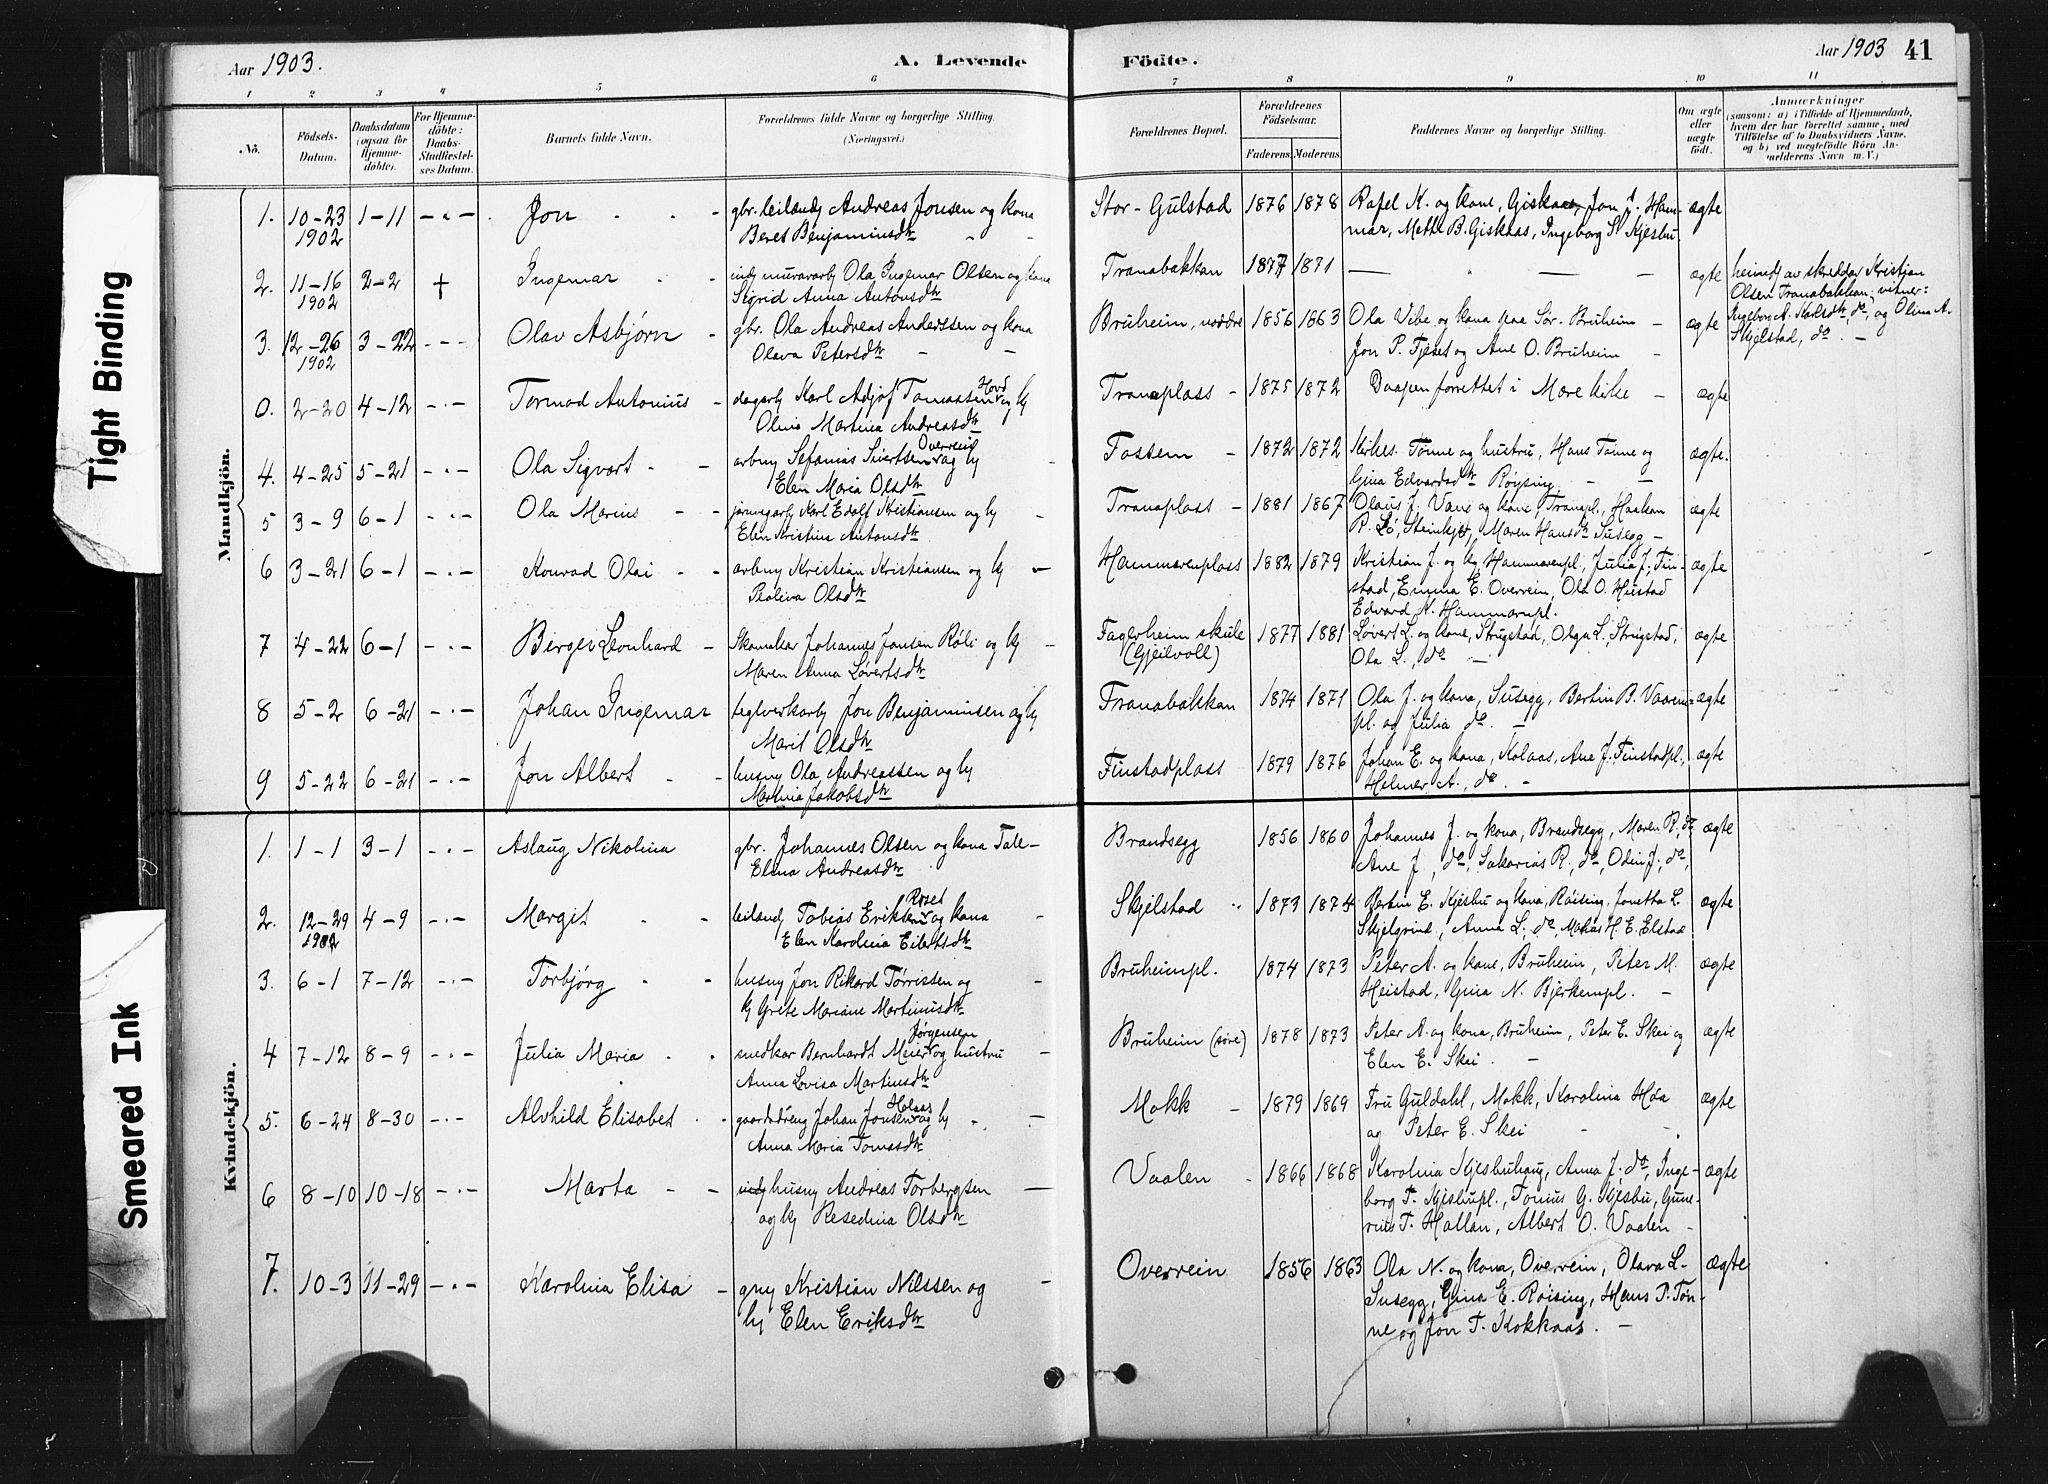 Aar 1903.
A. Levende
Födte.
Aar 1903 41
1 2 3 4 5 6 7 8 9 10 11
No.
Födsels-Datum.
Daabsdatum (ogsaa for Hjemme-döbte).
For Hjemme-döbte: Daabs-Stadfæstel-ses Datum.
Barnets fulde Navn.
Forældrenes fulde Navne og borgerlige Stilling.
(Næringsvei.)
Forældrenes Bopæl.
Forældrenes Födselsaar.
Faderens. Moderens.
Faddernes Navne og borgerlige Stilling.
Om ægte eller uægte födt.
Anmærkninger
(saasom: a) i Tilfælde af Hjemmedaab, hvem der har forrettet samme, med Tilföielse af to Daabsvidners Navne, og b) ved uægtefödte Börn Anmelderens Navn m. V.)
Tight Binding
Smeared Ink
Mandkjön.
1. 10-23 1902 1-11 Jon gbr. leilændg Andreas Jonsen og kona
Beret Benjaminsdtr
Stor-Gulstad 1876 1878 Rafel N. og kone, Giskaas, Jon J. Ham-
mar, Meth B. Giskaas, Ingeborg S. Kjesbu ægte
2. 11-16 1902 2-2 + Ingemar Ola Ingemar Olsen og kona
Sigrid Anna Antonsdtr
Tranabakkan 1877 1871 ægte heimdp av skreddar Kristian
Olsen Tranabakkan; vitner:
Ingebor A. Karlsdtr, do, og Olina A.
Skjelstad, do.
3. 12-26 1902 3-22 Olav Asbjørn gbr. Ola Andreas Anderssen og kona
Olava Petersdtr
Bruheim, nordre 1856 1863 Ola Vibe og kona paa Sør-Bruheim
Jon P. Fjeset og Ane O. Bruheim ægte
0. 2-20 4-12 Tormod Antonius dagarb Karl Adjof Tomassen Hovd og kj
Olnis Martina Andreasdtr
Tranaplass 1875 1872 Daapen forrettet i Mære kirke ægte
4. 4-25 5-21 Ola Sigvart arbmg Sefanias Sivertsen Overrein og kj
Elen Maria Olsdtr
Fossem 1872 1872 Kirkes. Tønne og hustru, Hans Tønne og
Gina Edvardsdtr Røysing ægte.
5 3-9 6-1 Ola Marius Karl Edolf Kristiansen og kj
Elen Kristina Antonsdtr
Tranaplass 1881 1867 Olaus J. Vane og kone, Tranpl., Haakon
P. Lø, Steinkjer, Maren Hansdtr Susegg ægte
6 3-21 6-1 Konrad Olai arbmg Kristian Kristiansen og kj
Peoliva Olsdtr
Hammarenplass 1882 1879 Kristian J. og kj, Hammarenpl., Julia J. Fin-
stad, Emma E. Overrein, Ola O. Heistad
Edvard N. Hammarnpl. ægte
7 4-22 6-1 Birger Leonhard Skomakar Johannes Jonsen Røli og kj
Maren Anna Løvertsdtr
Fagerheim skule
(Gjeilvoll) 1877 1881 Løvert L. og kone, Strugstad, Olga L. Strugstad,
Ola L., do ægte
8 5-2 6-21 Johan Ingemar teglverkarb Jon Benjaminsen og kj
Marit Olsdtr
Tranabakkan 1874 1871 Ola J. og kona, Susegg, Bertin B. Vaarem-
pl. og Julia do. ægte
9 5-22 6-21 Jon Albert husmg Ola Andreassen og kj
Martina Jakobsdtr
Finstadplass 1879 1876 Johan E. og kona, Kolaas, Ane J. Finstadpl.,
Helmer A., do. ægte
Kvindekjön.
1. 1-1 3-1 Aslaug Nikolina gbr. Johannes Olsen og kona Tale-
Elina Andreasdtr
Brandsegg 1856 1860 Johannes J. og kona, Brandsegg, Maren R., do,
Ane J., do, Sakarias R., do, Odin J., do, ægte
2. 12-29 1902 4-9 Margit leilændg Tobias Eriksen Roset og kona
Elen Karolina Eilertsdtr
Skjelstad 1873 1874 Bertin E. Kjesbu og kona, Røising, Jonetta L.
Skjelgrind, Anna L., do, H. E. Elstad ægte
3. 6-1 7-12 Torbjørg husmg Jon Rikard Tørrissen og
kj Grete Mariane Martinusdtr
Bruheimpl. 1874 1873 Peter A. og kone, Bruheim, Peter M.
Heistad, Gina N. Bjerkempl. ægte
4 7-12 8-9 Julia Maria snedkar Bernhardt Meier Jørgensen og hustru
Anna Lovisa Martinsdtr
Bruheim (søre) 1878 1873 Peter A. og kona, Bruheim, Peter E. Skei og
Elen E. Skei. ægte
5. 6-24 8-30 Alvhild Elisabet gaardsdreng Johan Jonsen Holaas og kj
Anna Maria Tomasdtr
Mokk 1879 1869 Fru Guldahl, Mokk, Karolina Høa
og Peter E. Skei ægte
6 8-10 10-18 Marta husmg Andreas Torbergsen
og kj Resedina Olsdtr
Vaalen 1866 1868 Karolina Kjesbuhaug, Anna J. do, Inge-
borg T. Kjesbupl., Tonius G. Kjesbu, Gune-
rius T. Hallan, Albert O. Vaalen ægte
7. 10-3 11-29 Karolina Elisa gmg Kristian Nilssen og
kj Elen Eriksdtr
Overrein 1856 1863 Ola N. og kona, Overrein, Olava L.
Susegg, Gina E. Røising, Hans P. Tøn-
ne og Jon T. Kokkaas. ægte